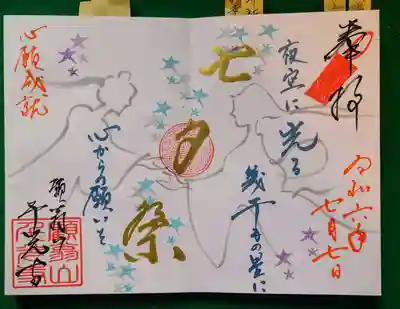 奉拝
令和六年
七月七日
夜空に光る
幾千もの星に
七夕祭
心からの願いを
心願成就